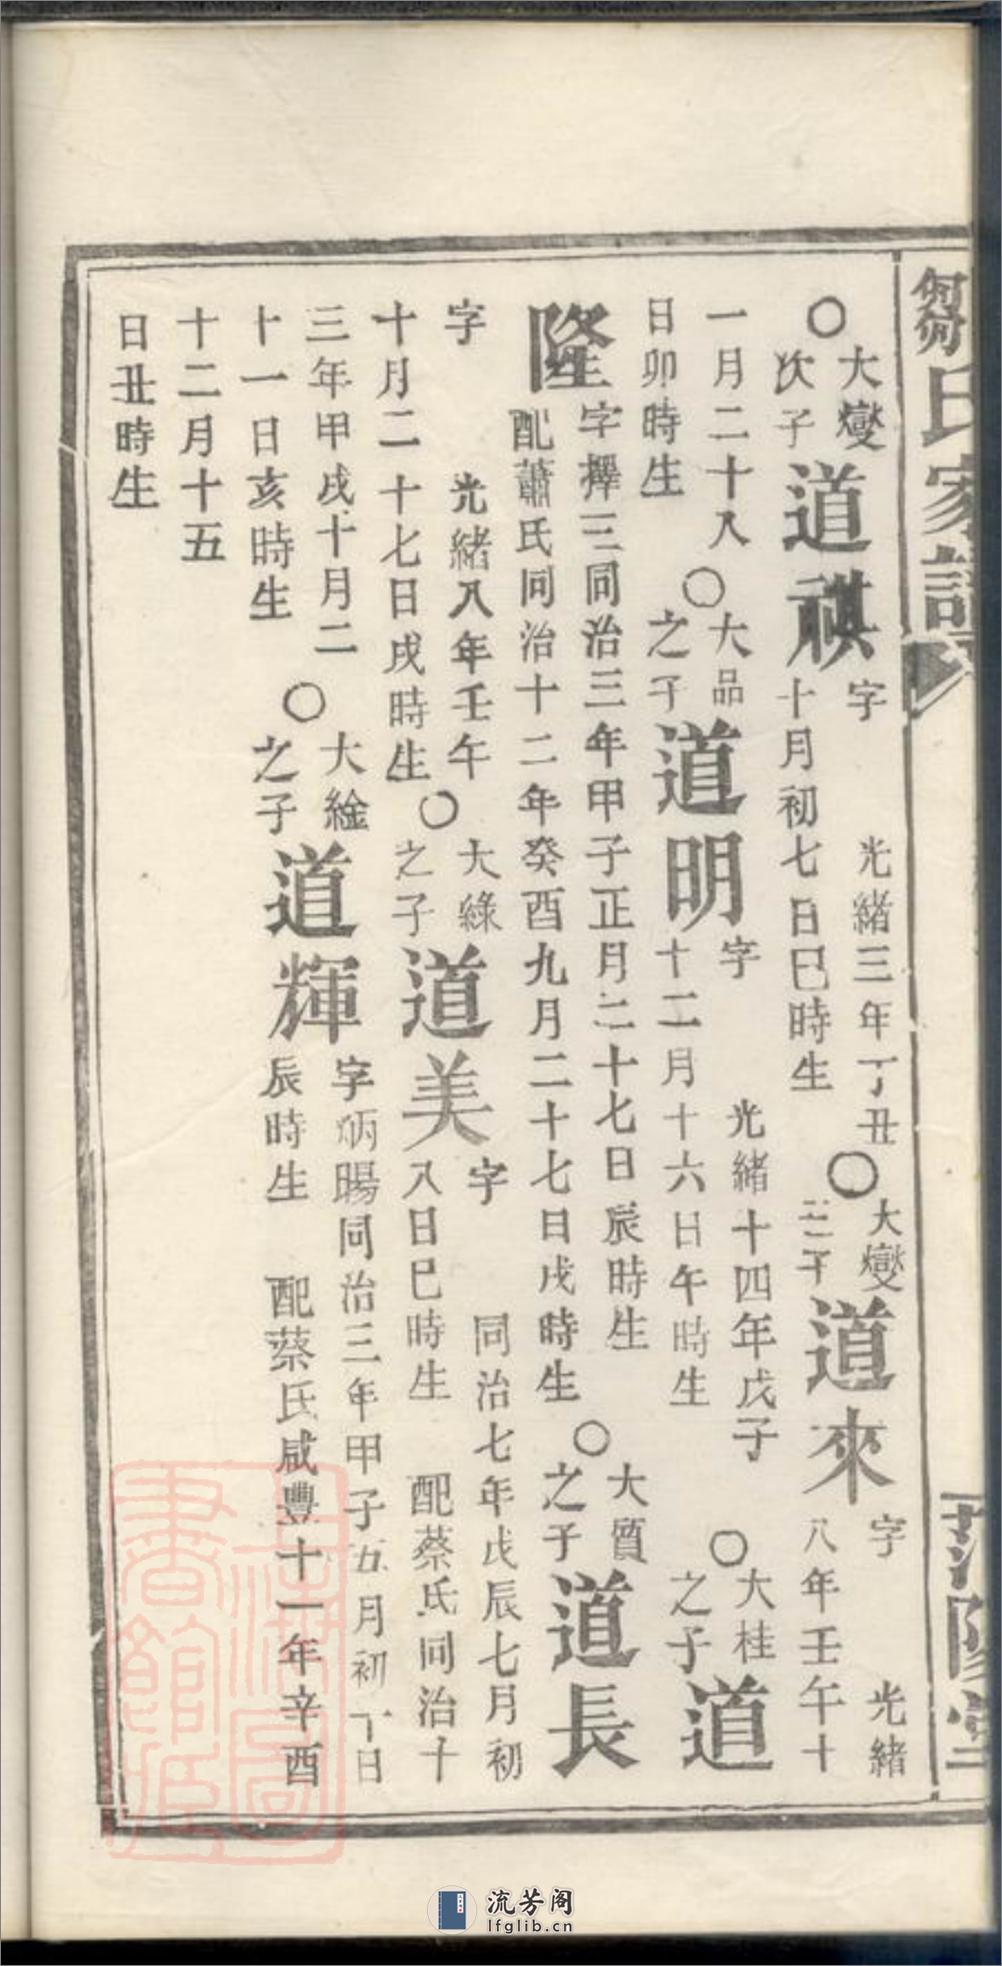 鄒氏家譜
范陽堂
○大燮次子道祺字 光緒三年丁丑十月初七日巳時生○大燮三子道來字 光緒八年壬午十
一月二十八日卯時生○大品之子道明字 光緒十四年戊子十二月十六日午時生○大桂之子道
隆字擇三同治三年甲子正月二十七日辰時生配蕭氏同治十二年癸酉九月二十七日戌時生○大質之子道長
字 光緒八年壬午十月二十七日戌時生○大綠之子道美字 同治七年戊辰七月初八日巳時生 配蔡氏同治十
三年甲戌十月二十一日亥時生○大之子道輝字炳暘同治三年甲子五月初日辰時生 配蔡氏咸豐十一年辛酉
十二月十五日丑時生
流芳阁
lfglib.cn